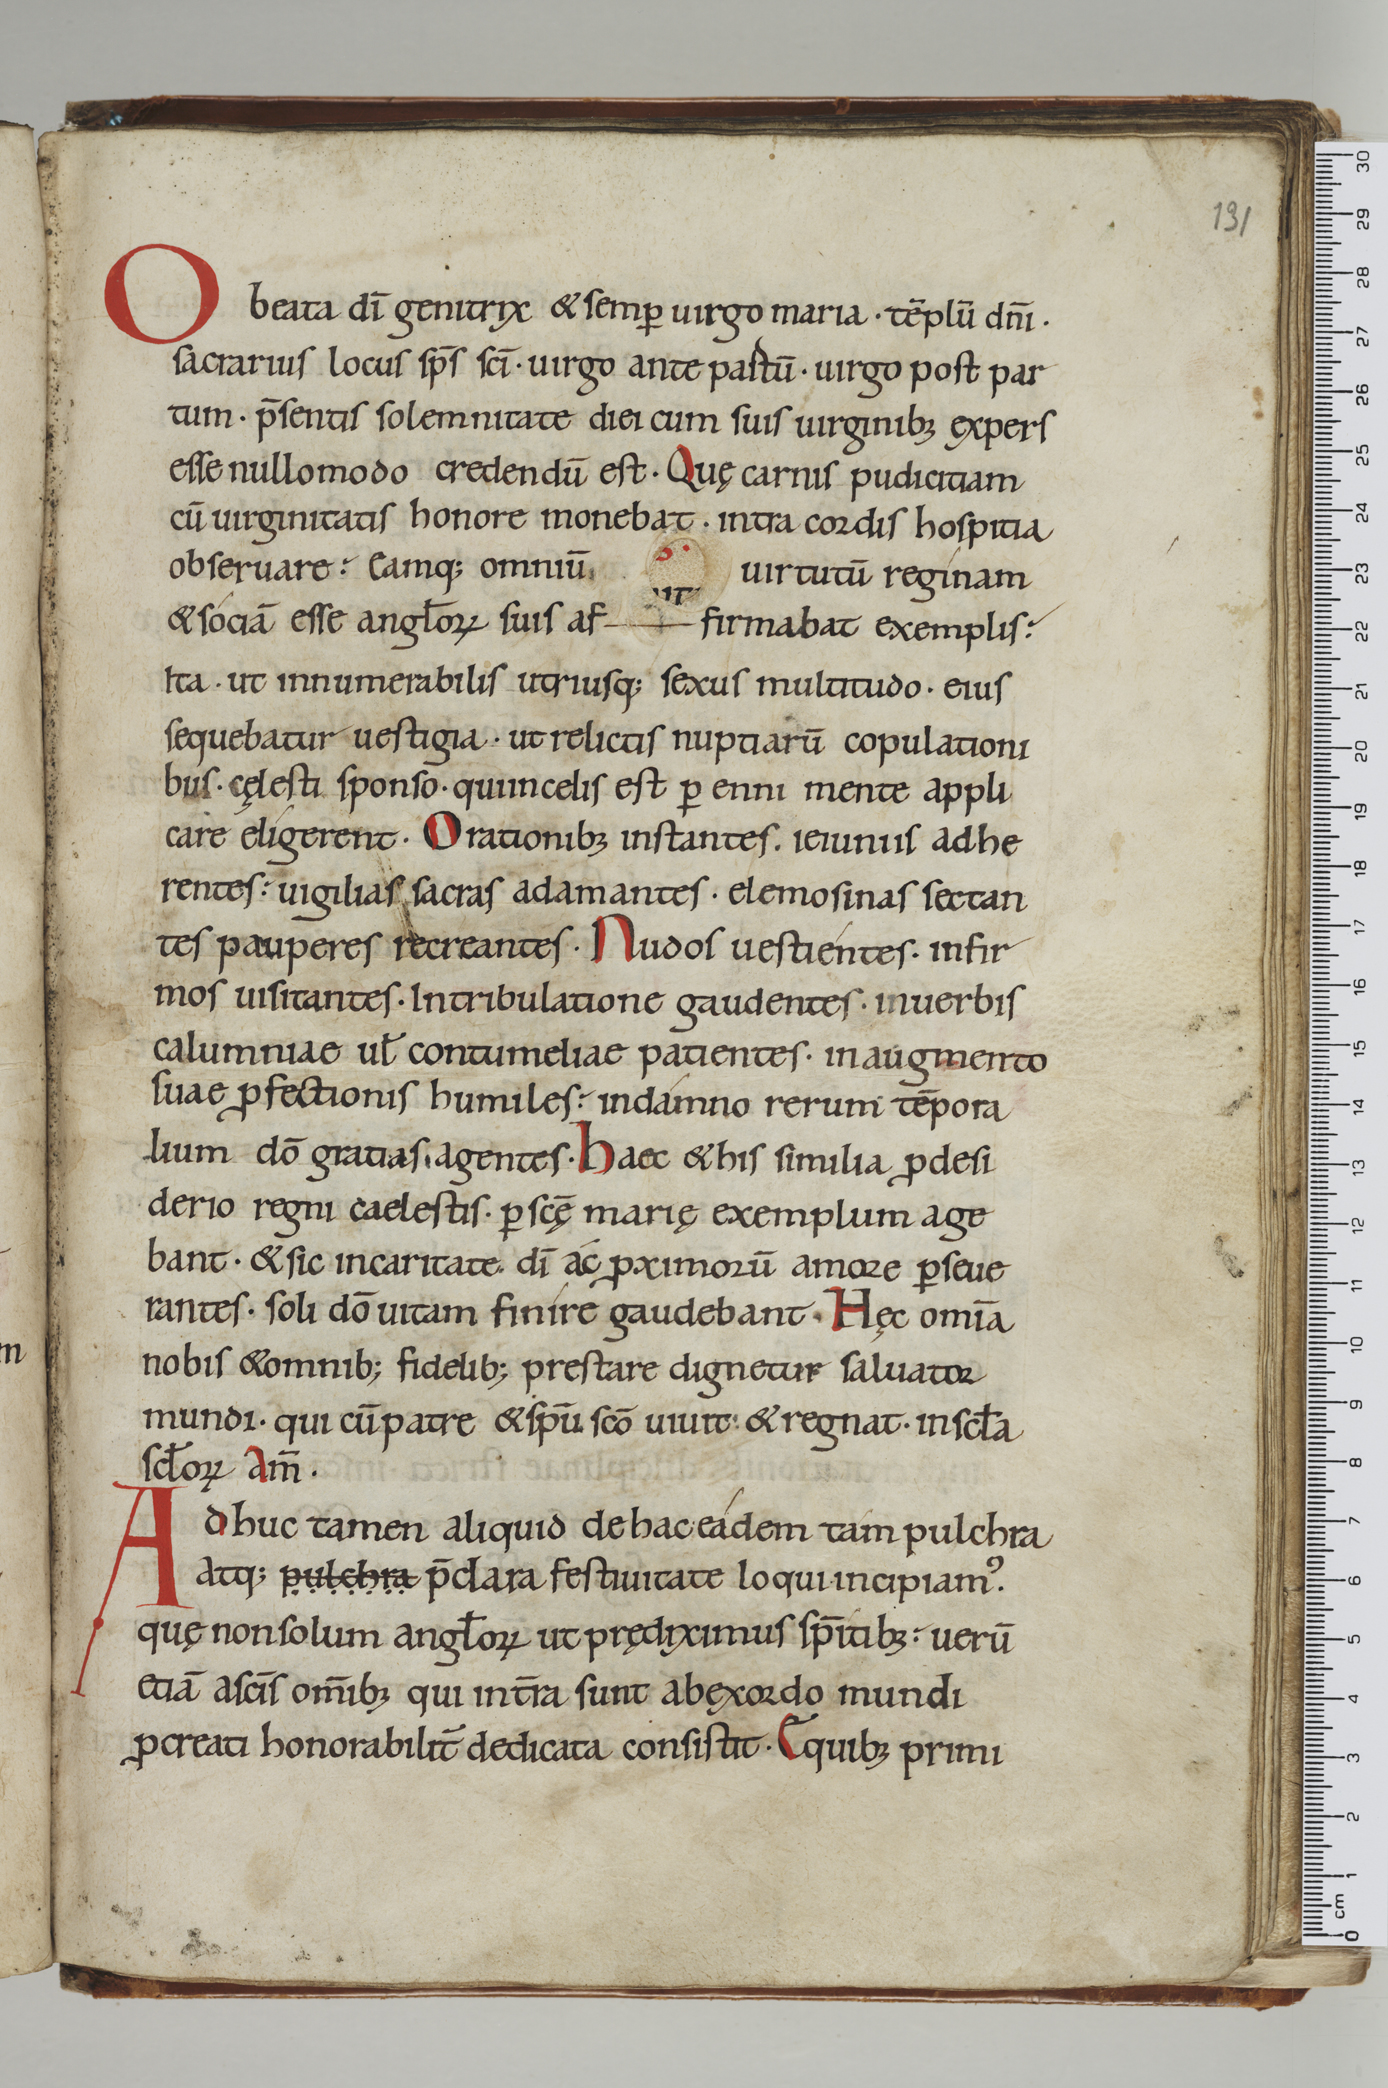 131
O beata dī genitrix & semp̲ uirgo maria · tēplū dn̄i ·
sacrarius locus sp̄s sc̄i · uirgo ante partū · uirgo post par
tum · p̄sentis solemnitate diei cum suis uirginibꝫ expers
esse nullomodo credendū est · Quę carnis pudicitiam
cū uirginitatis honore monebat · intra cordis hospitia
obseruare : Eamq; omniū uirtutū reginam
& sociā esse angl̄oꝝ suis af firmabat exemplis :
Ita · ut innumerabilis utriusq; sexus multitudo · eius
sequebatur uestigia · ut relictis nuptiarū copulationi
bus · cęlesti sponso · qui in celis est ꝑenni mente appli
care eligerent · Orationibꝫ instantes . ieiuniis adhe
rentes : uigilias sacras adamantes · elemosinas sectan
tes pauperes recreantes · Nudos uestientes · infir
mos uisitantes · In tribulatione gaudentes · in uerbis
calumniae ul̄ contumeliae patientes · in augmento
suae ꝓfectionis humiles : in damno rerum tēpora
lium dō gratias agentes · Haec & his similia ꝓ desi
derio regni caelestis · ꝑ scę̄ marię exemplum age
bant · & sic in caritate dī ac ꝓximorū amore ꝑseue
rantes · soli dō uitam finire gaudebant · Hęc om̄ia
nobis & omnib; fidelib; prestare dignetur saluator
mundi · qui cū patre & sp̄u sc̄o uiuit & regnat · in scl̄a
scl̄oꝝ Am̄ ·
Adhuc tamen aliquid de hac eadem tam pulchra
atq; pulchra p̄clara festiuitate loqui incipiam⁹ .
quę non solum angl̄oꝝ ut prędiximus sp̄itibꝫ : uerū
etiā a sc̄is om̄ibꝫ qui in tr̄a sunt ab exordo mundi
ꝓcreati honorabilit̄ dedicata consistit · E quibꝫ primi